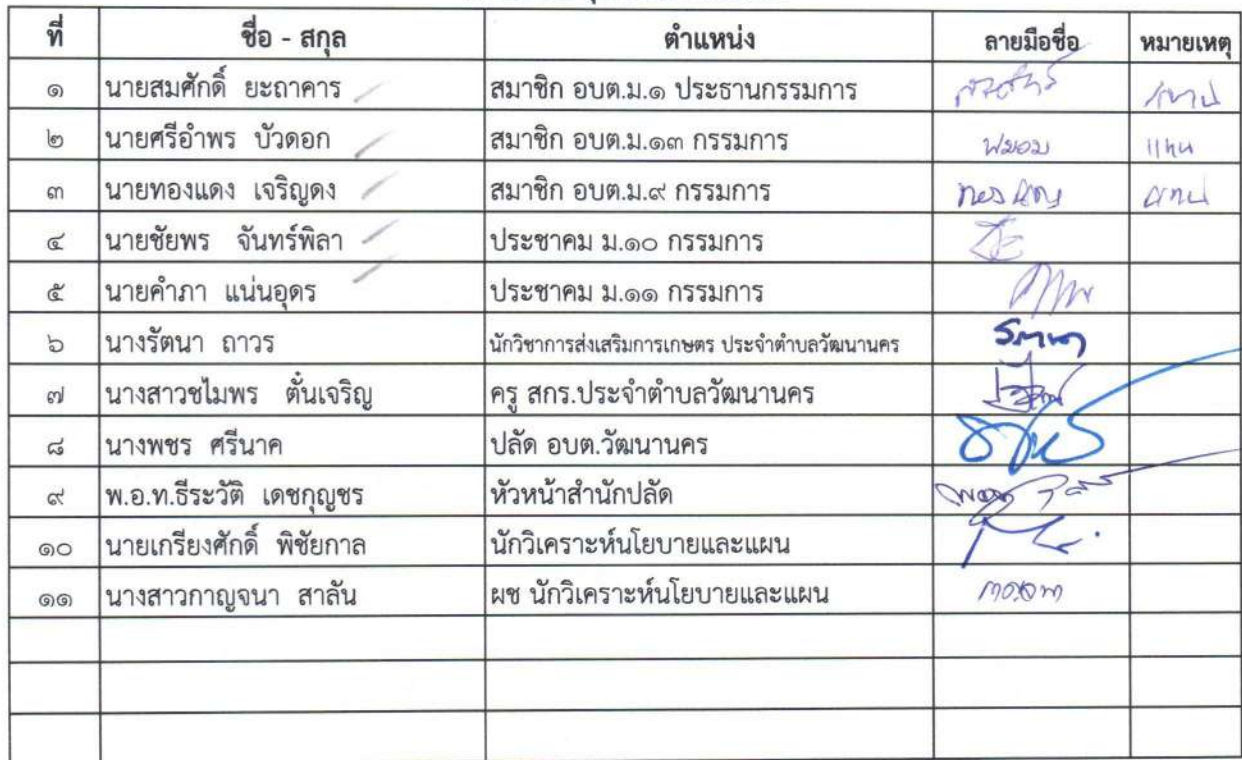 ที่ ชื่อ - สกุล ตำแหน่ง ลายมือชื่อ หมายเหตุ
๑ นายสมศักดิ์ ยะถาคาร สมาชิก อบต.ม.๑ ประธานกรรมการ
๒ นายศรีอำพร บัวดอก สมาชิก อบต.ม.๑๓ กรรมการ
๓ นายทองแดง เจริญดง สมาชิก อบต.ม.๙ กรรมการ
๔ นายชัยพร จันทร์พิลา ประชาคม ม.๑๐ กรรมการ
๕ นายคำภา แน่นอุดร ประชาคม ม.๑๑ กรรมการ
๖ นางรัตนา ถาวร นักวิชาการส่งเสริมการเกษตร ประจำตำบลวัฒนานคร รัตนา
๗ นางสาวชไมพร ตั๋นเจริญ ครู สกร.ประจำตำบลวัฒนานคร
๘ นางพชร ศรีนาค ปลัด อบต.วัฒนานคร
๙ พ.อ.ท.ธีระวัติ เดชกุญชร หัวหน้าสำนักปลัด
๑๐ นายเกรียงศักดิ์ พิชัยกาล นักวิเคราะห์นโยบายและแผน
๑๑ นางสาวกาญจนา สาลัน ผช นักวิเคราะห์นโยบายและแผน